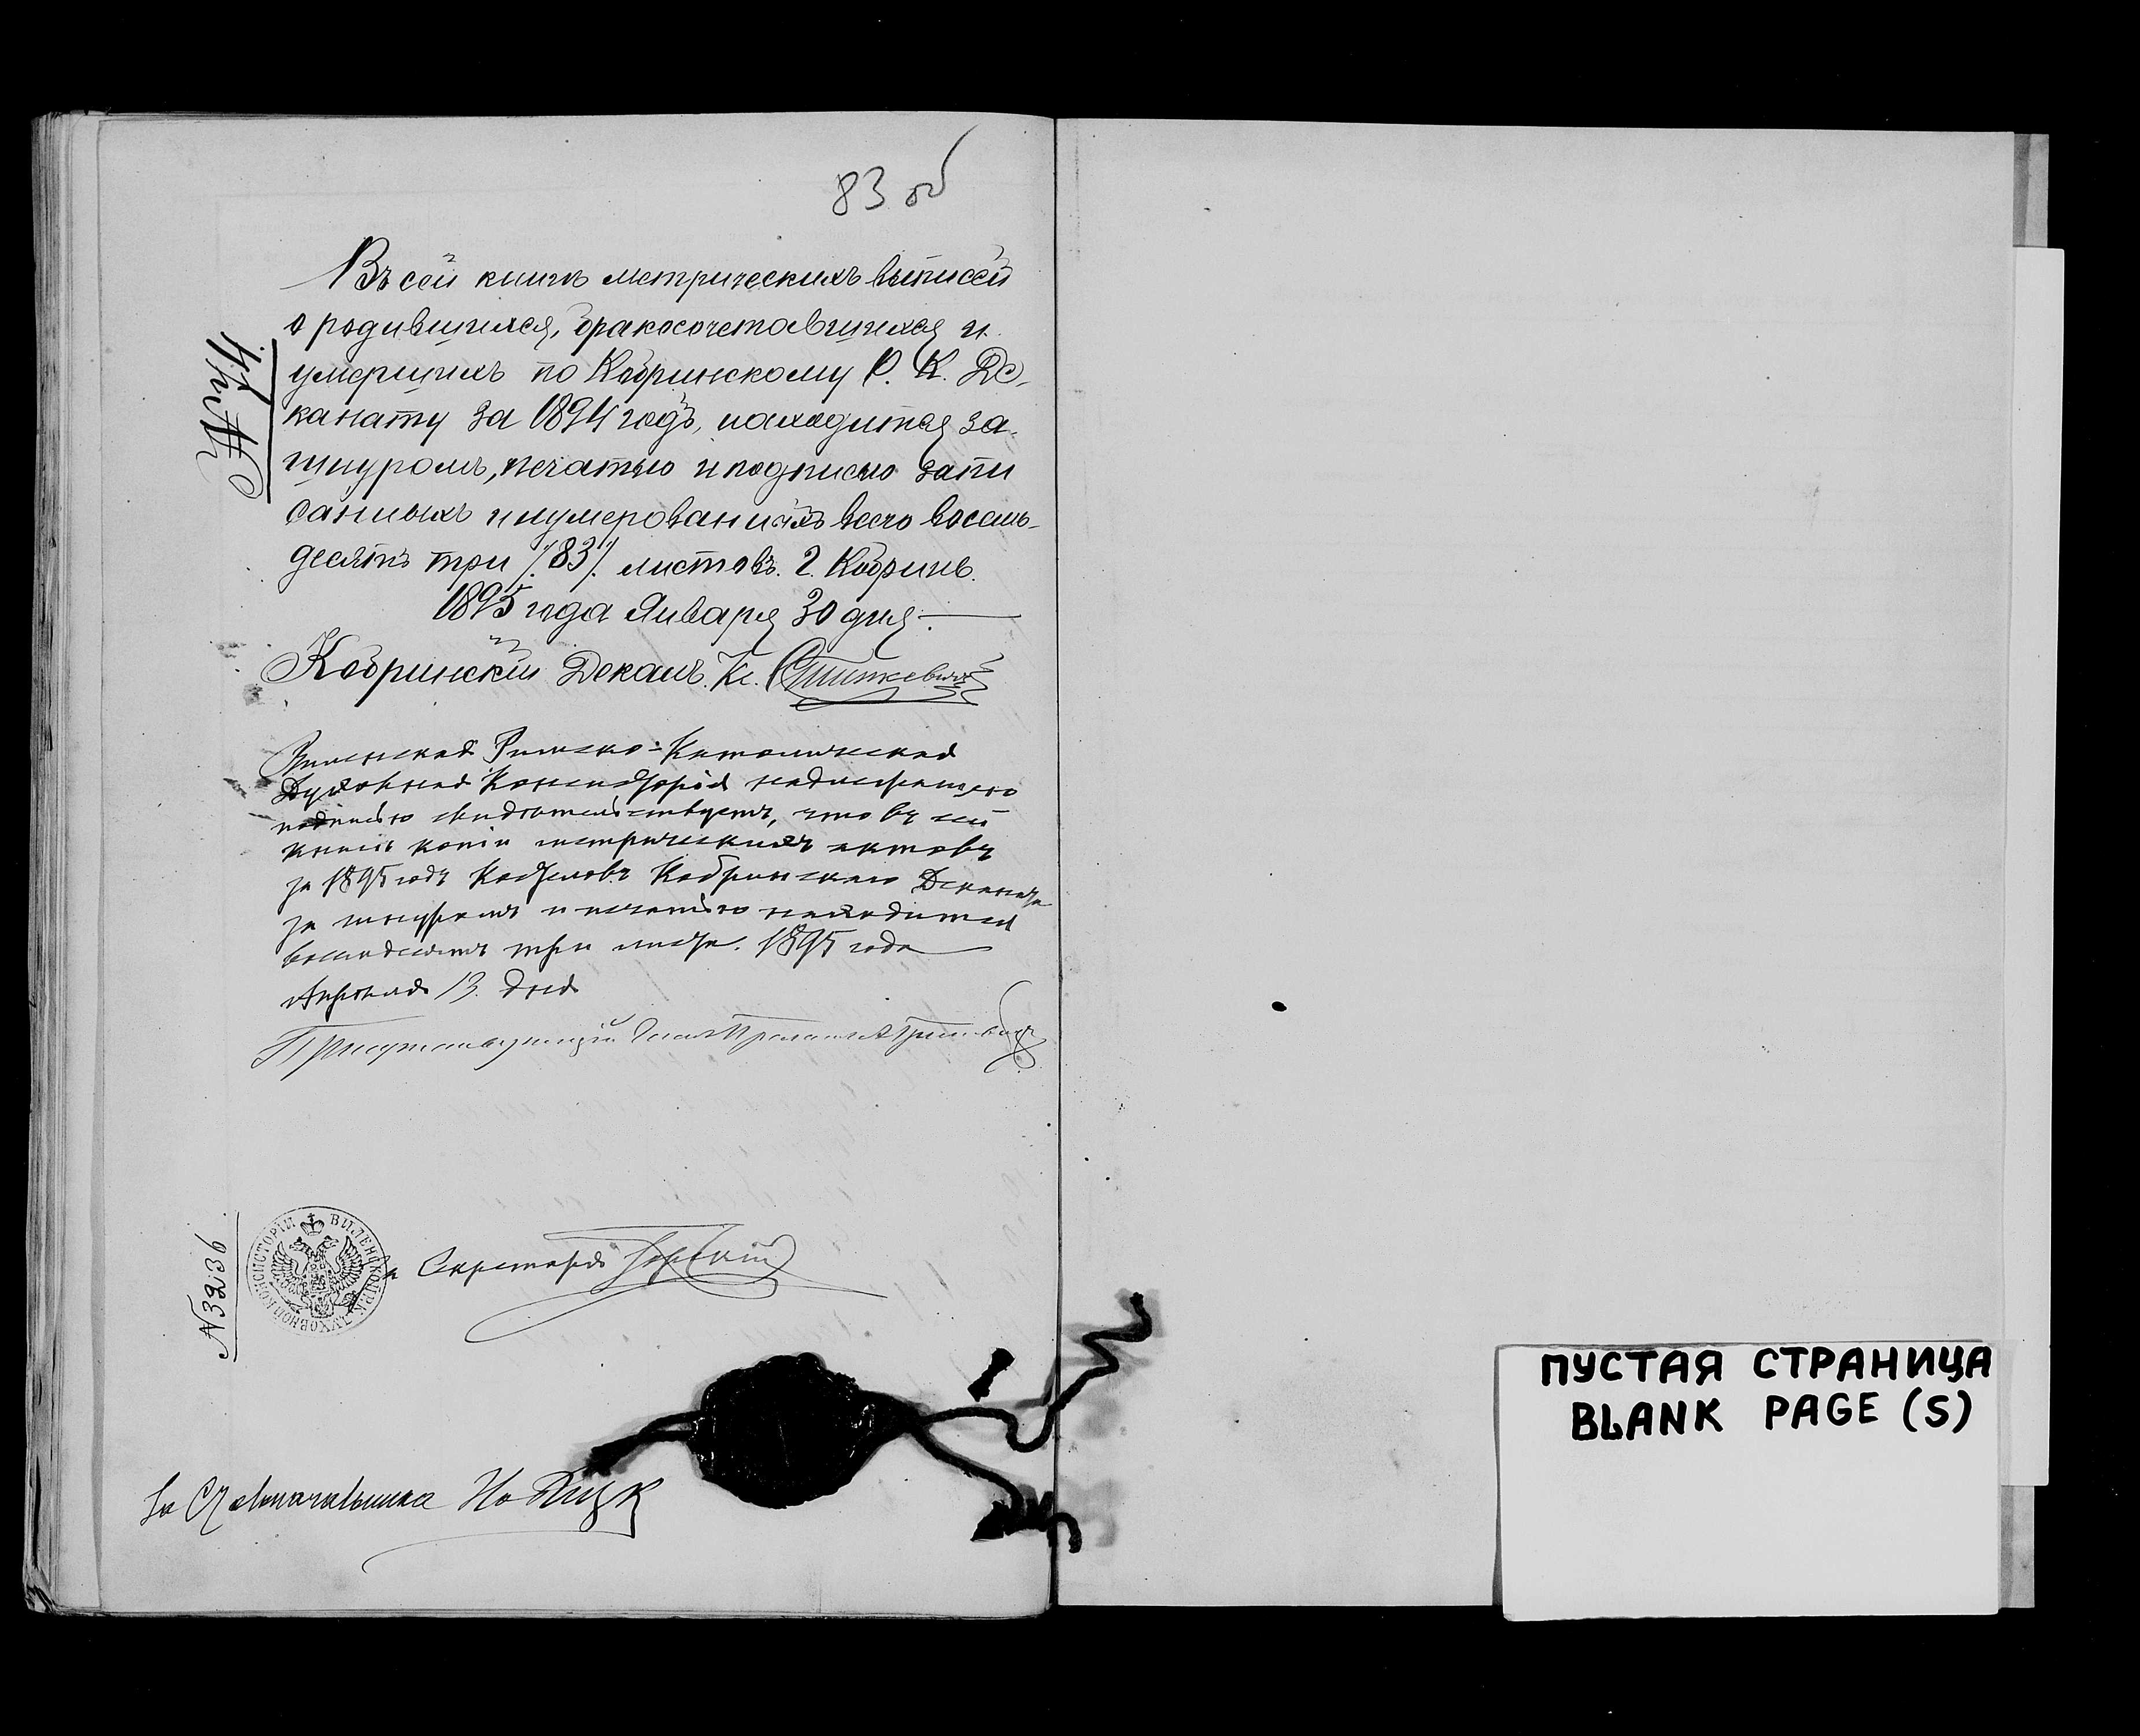 83 об
Въ сей книгѣ метрическихъ выписей
о родившихся, бракосочетавшихся и
умершихъ по Кобринскому Р. К. Де-
канату за 1894 годъ, находится за
шнуромъ, печатью и подписью запи
санныхъ и нумерованныхъ всего восемь-
десятъ три /83/. листовъ. г. Кобринъ.
1895 года Января 30 дня.
Кобринскій Деканъ. Кс.
Виленская Римско-Католическая
Духовная Консисторія надлежащею
подписью свидѣтельствуетъ, что въ сей
книгѣ копіи метрическихъ актовъ
за 1895 годъ Костеловъ Кобринскаго Деканата
за шнуромъ и печатью находится
восемдесятъ три листа. 1895 года
Апрѣля 13. дня
Присутствующій
N 3236
ВИЛЕНСКОЙ Р.К. ДУХОВНОЙ КОНСИСТОРІИ
Секретарь
За Столоначальника
ПУСТАЯ СТРАНИЦА
BLANK PAGE (S)